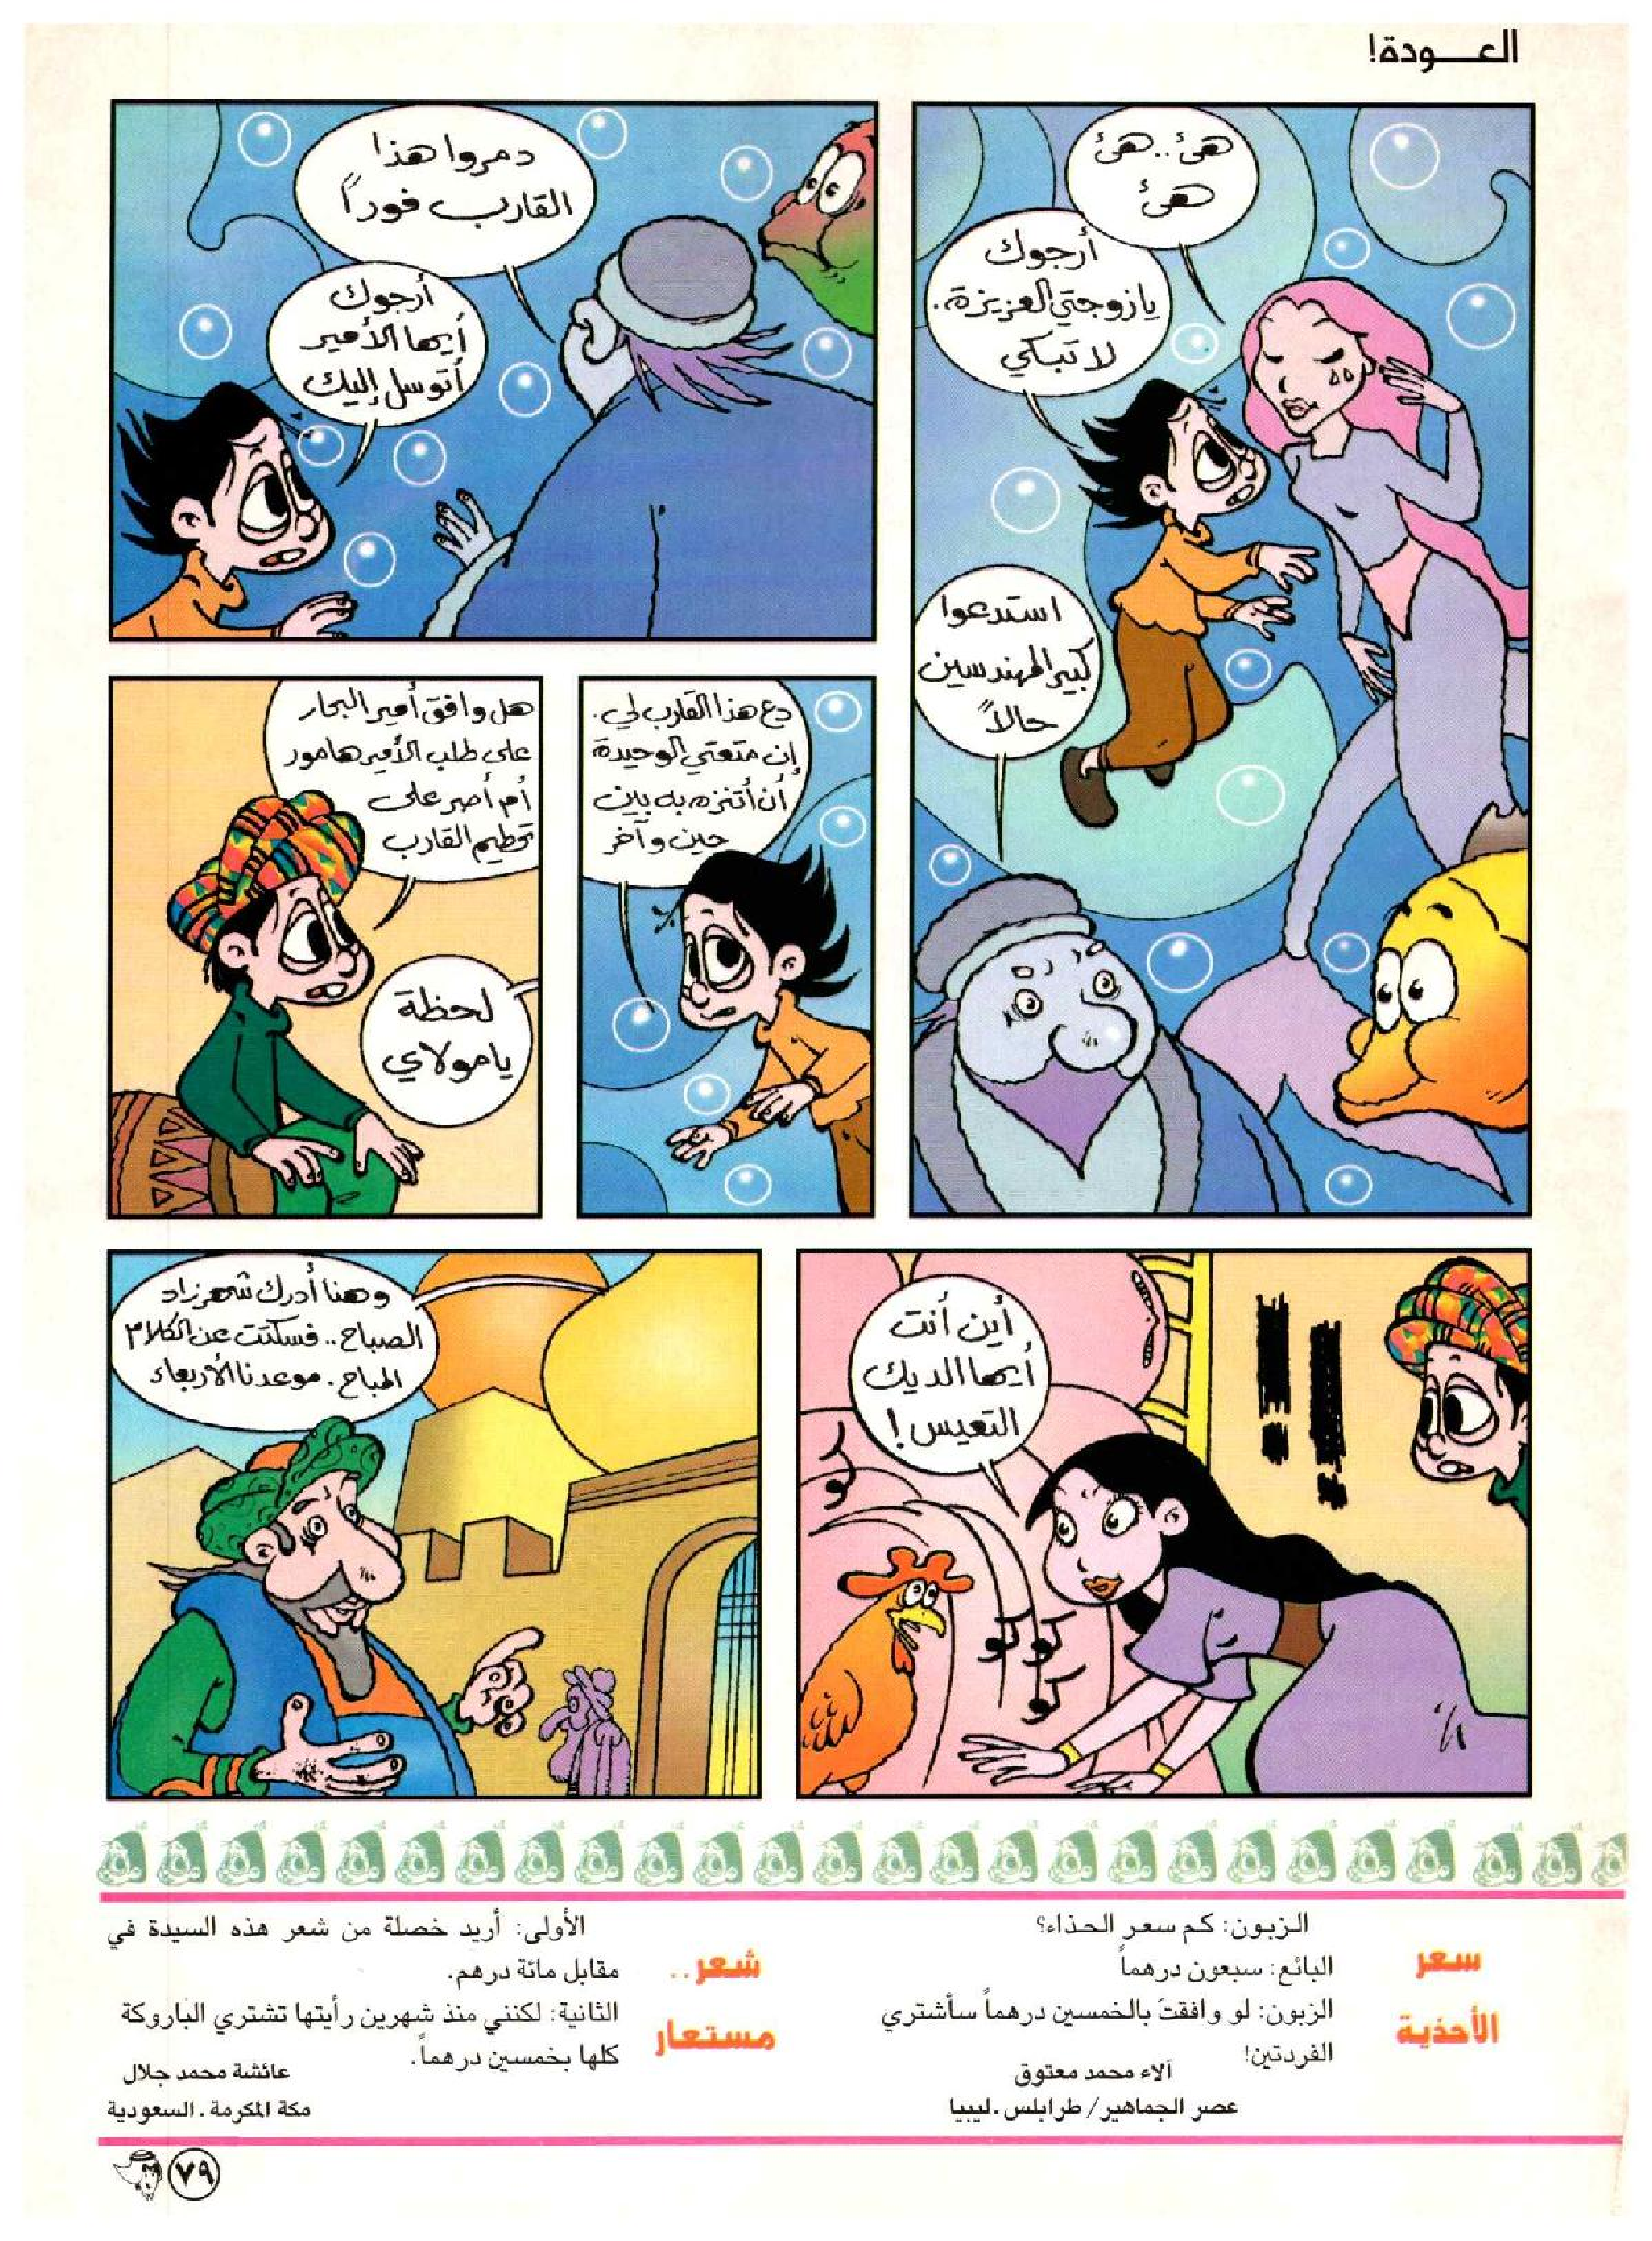 العـــودة!
هئ..هئ
هئ
أرجوك
يازوجتي العزيزة.
لا تبكي
استدعوا
كبير المهندسين
حالاً
دمروا هذا
القارب فوراً
أرجوك
أيها الأمير
أتوسل إليك
دع هذا القارب لي.
إن متعتي الوحيدة
أن أتنزه به بين
حين وآخر
هل وافق أمير البحار
على طلب الأمير هامور
أم أصر على
تحطيم القارب
لحظة
يامولاي
أين أنت
أيها الديك
التعيس!
!!
كو
كو
كو
كو
وهنا أدرك شهرزاد
الصباح.. فسكتت عن الكلام
المباح. موعدنا الأربعاء
سعر
الأحذية
الزبون: كم سعر الحذاء؟
البائع: سبعون درهماً
الزبون: لو وافقتَ بالخمسين درهماً سأشتري
الفردتين!
آلاء محمد معتوق
عصر الجماهير/ طرابلس.ليبيا
شعر..
مستعار
الأولى: أريد خصلة من شعر هذه السيدة في
مقابل مائة درهم.
الثانية: لكنني منذ شهرين رأيتها تشتري الباروكة
كلها بخمسين درهماً.
عائشة محمد جلال
مكة المكرمة. السعودية
٧٩